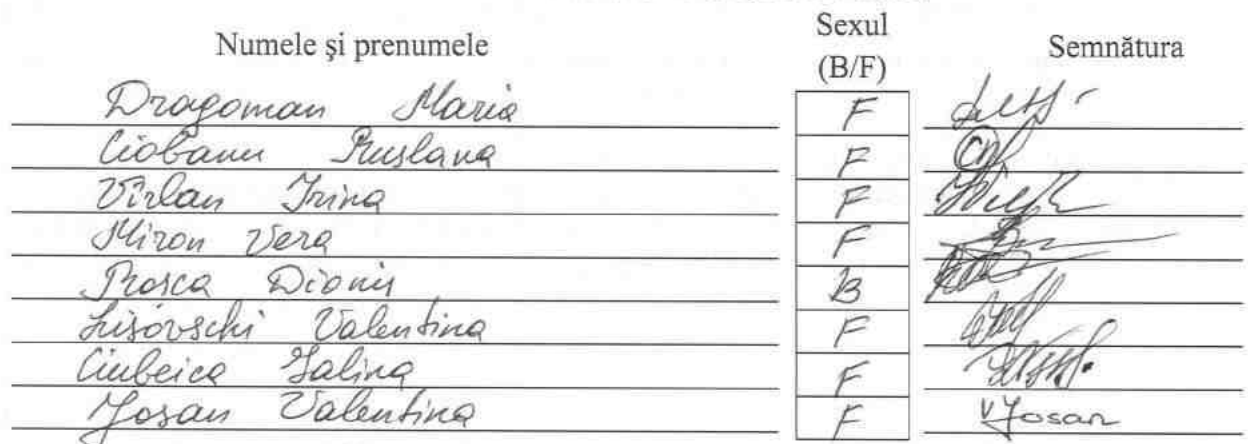 Numele şi prenumele Sexul (B/F) Semnătura
Dragoman Maria F
Ciobanu Ruslana F
Vîrlan Irina F
Miron Vera F
Rosca Dionis B
Lisovschi Valentina F
Ciubeica Galina F
Josan Valentina F Josan